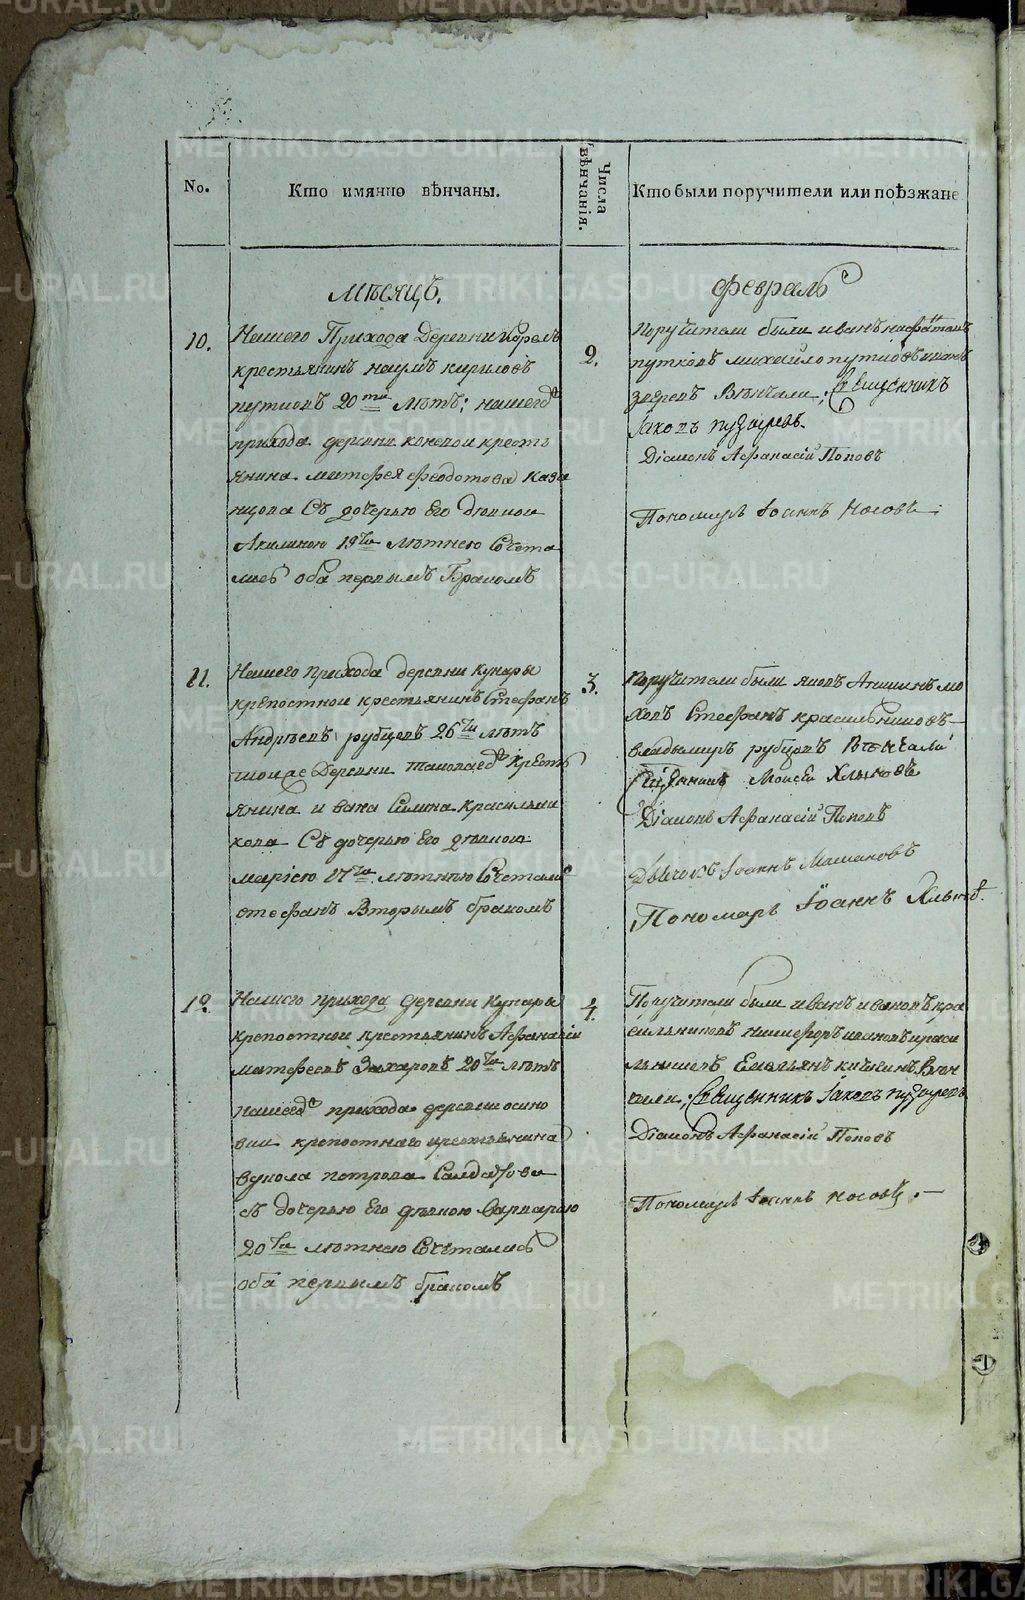 No.
Кто имянно вѣнчаны.
Числа вѣнчанія.
Кто были поручители или поѣзжане.
Мѣсяцъ.
Февраль
10.
Нашего Прихода Деревни
крестьянинъ наумъ кириловъ
20ти лѣтъ; нашегожъ
прихода деревни коневои кресть
янина матфея феодотова Каза
нцова Съ дочерью Его дѣвкои
Акилиною 19ти лѣтнею Сочета
лись оба первымъ Бракомъ
2.
поручители были иванъ
михаило иванъ
Вѣнчали; Священникъ
Іаковъ пузыревъ
Діаконъ Афанасіи Поповъ
Пономарь Іоаннъ Носовъ
11.
Нашего прихода деревни Кунары
крепостнои крестьянинъ Стефанъ
Андрѣевъ рубцовъ 26ти лѣтъ
Деревни такогожъ Кресть
янина ивана Силина Красильни
кова Съ дочерью Его дѣвкою
маріею 17ти лѣтнею Сочетались
стефанъ Вторымъ бракомъ
3.
Поручители были яковъ
Стефанъ красильниковъ
владимиръ рубцовъ Вѣнчали
Священникъ Моисеи Хлыновъ
Діаконъ Афанасіи Поповъ
Дьячокъ Іоаннъ
Пономарь Іоаннъ
12.
Нашего прихода деревни Кунары
крепостнои крестьянинъ Афанасіи
матфеевъ Захаровъ 20ти лѣтъ
нашегожъ прихода деревни осино
вки крепостнаго крестьянина
вукола петрова Салдатова
съ дочерью Его дѣвкою Варварою
20ти лѣтнею Сочетались
оба первымъ бракомъ
4.
Поручители были иванъ ивановъ кра
сильниковъ никифоръ ивановъ краси
льниковъ Емельянъ Вѣн
чали, Священникъ Іаковъ пузыревъ
Діаконъ Афанасіи Поповъ
Пономарь Іоаннъ носовъ
METRIKI.GASO-URAL.RU